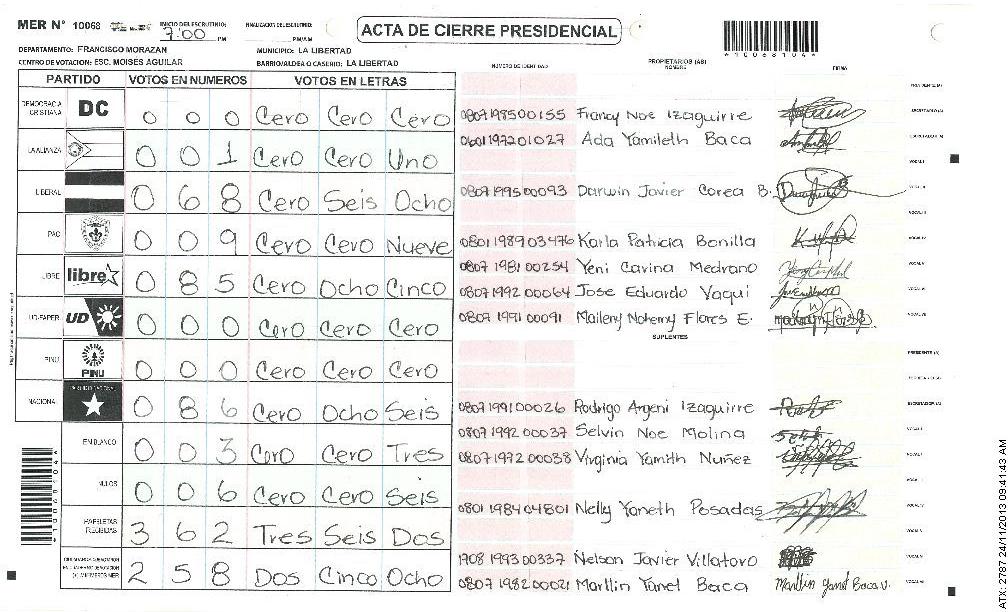 MER Nº 10068 INICIO DEL ESCRUTINIO: FINALIZACION DEL ESCRUTINIO: ACTA DE CIERRE PRESIDENCIAL
7:00 PM PM/AM *10068104*
DEPARTAMENTO: FRANCISCO MORAZAN MUNICIPIO: LA LIBERTAD
CENTRO DE VOTACION: ESC. MOISES AGUILAR BARRIO/ALDEA O CASERIO: LA LIBERTAD
NUMERO DE IDENTIDAD PROPIETARIOS (AS) NOMBRE FIRMA
PARTIDO VOTOS EN NUMEROS VOTOS EN LETRAS
DEMOCRACIA CRISTIANA DC 0 0 0 Cero Cero Cero
LA ALIANZA 0 0 1 Cero Cero Uno
LIBERAL 0 6 8 Cero Seis Ocho
PAC 0 0 9 Cero Cero Nueve
LIBRE libre 0 8 5 Cero Ocho Cinco
UD-FAPER UD 0 0 0 Cero Cero Cero
PINU PINU 0 0 0 Cero Cero Cero
NACIONAL PARTIDO NACIONAL 0 8 6 Cero Ocho Seis
EN BLANCO 0 0 3 Cero Cero Tres
NULOS 0 0 6 Cero Cero Seis
PAPELETAS RECIBIDAS 3 6 2 Tres Seis Dos
2 5 8 Dos Cinco Ocho
0807198500155 Francy Noe Izaguirre
0601197201027 Ada Yamileth Baca
0807199500093 Darwin Javier Corea B.
0801198903476 Karla Patricia Bonilla
0807198100254 Yeni Carina Medrano
0807199200064 Jose Eduardo Vaqui
0807199100091 Maileny Nohemy Flores E.
SUPLENTES
0807199100026 Rodrigo Argeni Izaguirre
0807199200037 Selvin Noe Molina
0807197200038 Virginia Yamith Nuñez
0801198404801 Nelly Yaneth Posadas
1708199300337 Nelson Javier Villatoro
0807198200021 Marllin Yanet Baca Marllin Yanet Baca V.
ATX: 2787 24/11/2013 09:41:43 AM